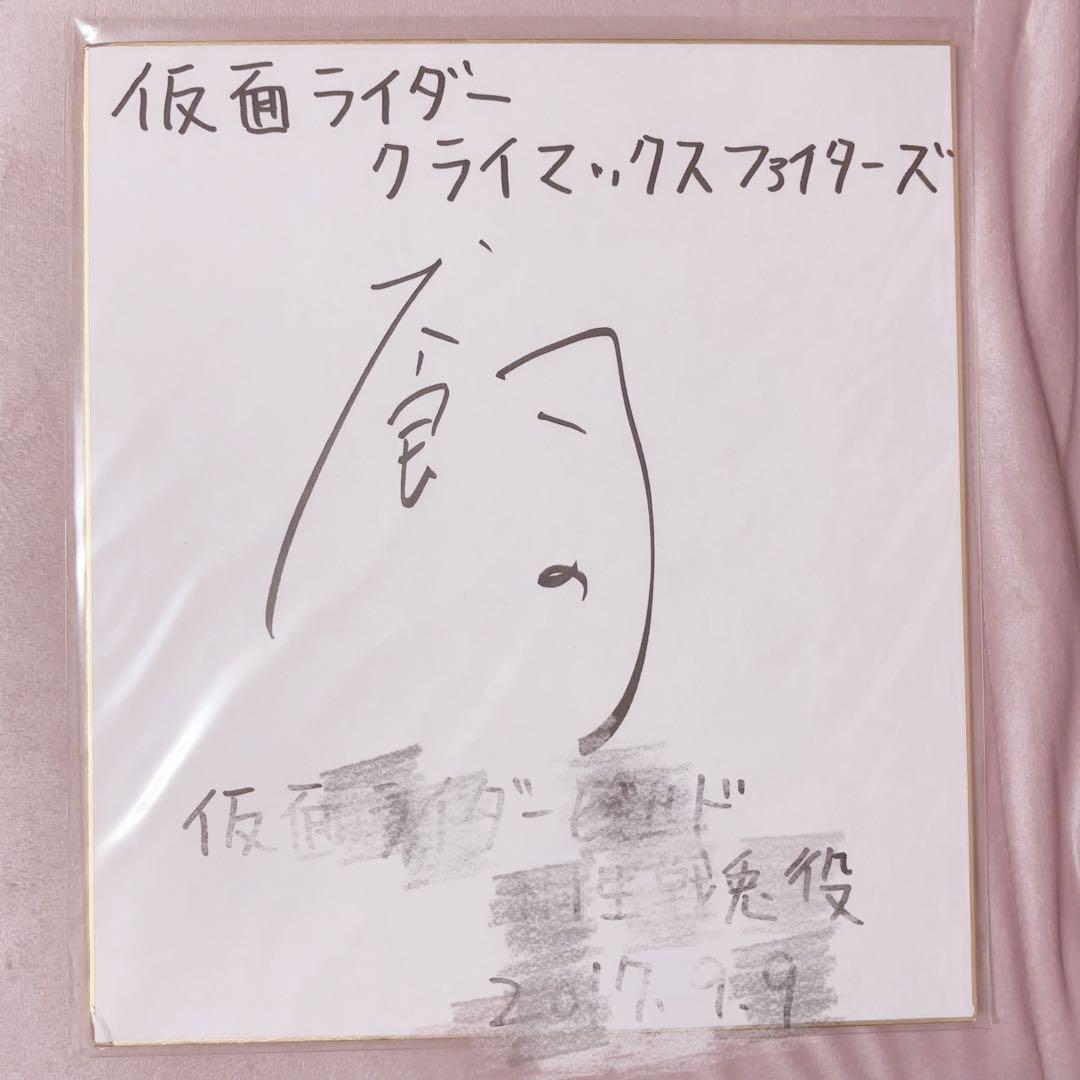 仮面ライダー
クライマックスファイターズ
仮面ライダービルド
桐生戦兎役
2017.9.9